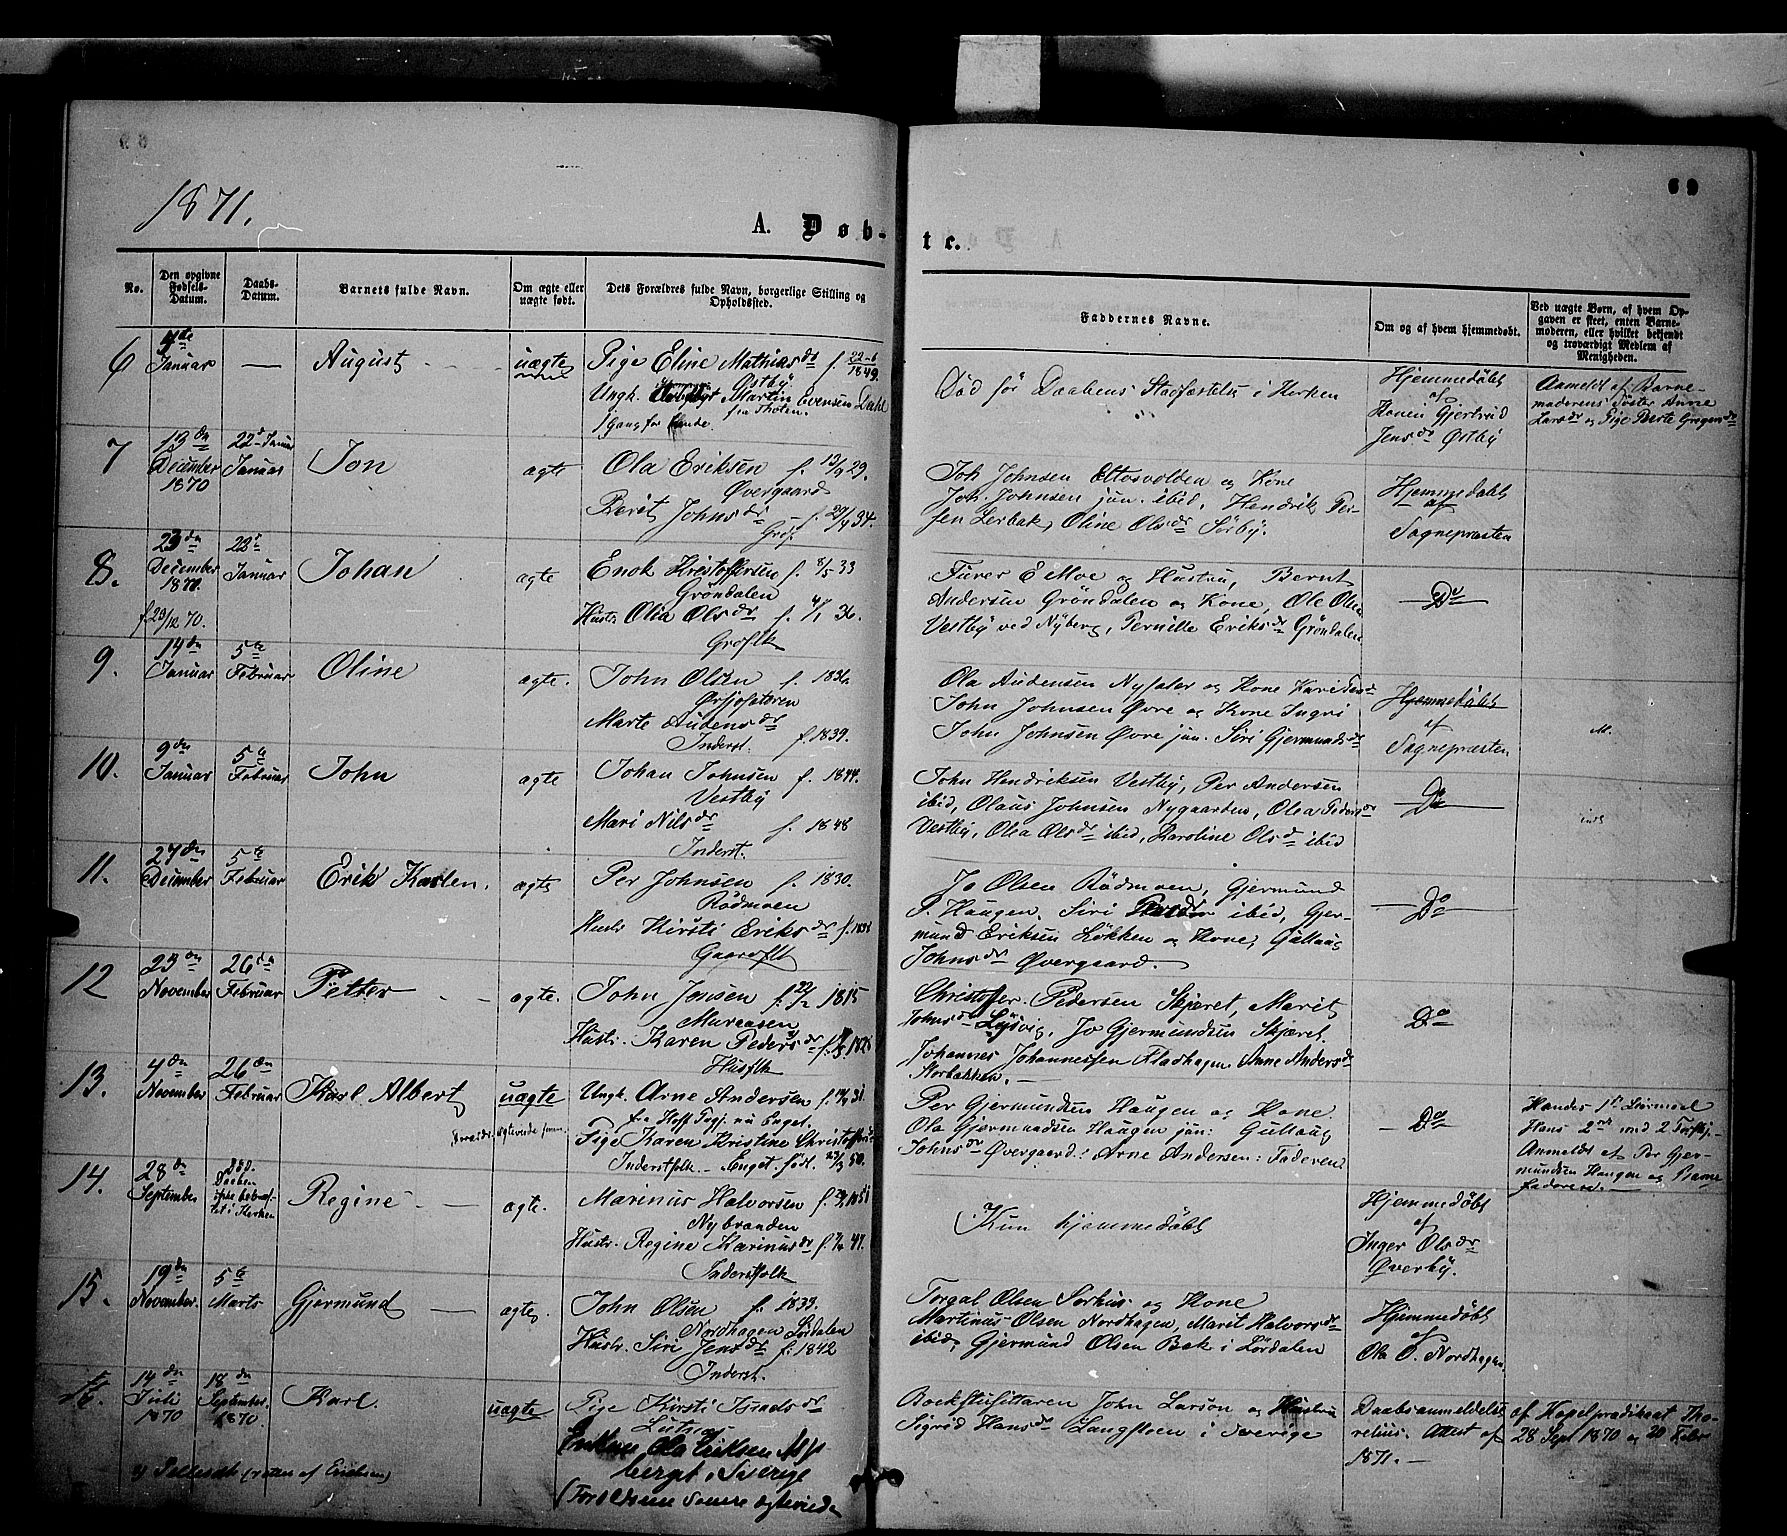 1871.
69
A. Døb-
te.
No.
Den opgivne Fødsels-Datum.
Daabs-Datum.
Barnets fulde Navn.
Om ægte eller uægte født.
Dets Forældres fulde Navn, borgerlige Stilling og Opholdssted.
Faddernes Navne.
Om og af hvem hjemmedøbt.
Ved uægte Børn, af hvem Opgaven er skeet, enten Barnemoderen, eller hvilket bekjendt og troværdigt Medlem af Menigheden.
6
Januar
August
uægte
Pige Eline Mathiasdr f. 22-6 1849.
Østby
Ungk. Martin Evensen Dahl
fra Thoten.
Død før Daabens Stadfæstelse i Kirken
Hjemmedøbt
af
Konen Gjertrud
Jensdr Østby
Anmeldt af Barne-
moderens Søster Anne
Larsdr og Pige Berte Gregersdr
7
13de
December
1870
22de Januar
Januar
Jon
ægte
Ola Eriksen f. 13/9 29.
Øvergaard
Berit Johnsdr f. 29/9 34.
Joh. Johnsen Ottosvolden og Kone
Joh. Johnsen jun. ibid, Hendrik Per-
sen Lerbak, Oline Olsdr Sørby.
Hjemmedøbt
af
Sognepræsten
8.
23de
December
1870.
22de
Januar
f. 23/12 70.
Johan
ægte
Enok Kristoffersen f. 8/5 33
Gröndalen
Hustr. Olia Olsdr f. 4/1 36.
Grdflk
Furer E Moe og Hustru, Bernt
Andersen Gröndalen og Kone, Ole Olsen
Vestby ved Nyberg, Pernille Eriksdr Gröndalen
Do
9.
14de
Januar
5te
Februar
Oline
ægte.
John Olsen f. 1836
Marte Audensdr
Inderst. f. 1839.
Ola Audensen Nysæter og Kone Kari Pedersdr
John Johnsen Øvre og Kone Ingri
John Johnsen Øvre jun. Siri Gjermundsdr
Hjemmedøbt
af
Sognepræsten
10.
9de
Januar
5te
Februar
John
ægte
Johan Johnsen f. 1844.
Vestby
Mari Nilsdr f. 1848
Inderst.
John Hendriksen Vestby, Per Andersen
ibid, Olaus Johnsen Nygaarden, Olea Pedersdr
Vestby, Olea Olsdr ibid, Karoline Olsd ibid
Do
11.
27de
December
5te
Februar
Erik Karlen.
ægte
Per Johnsen f. 1830.
Rödmoen
Hustr Kirsti Eriksdr f. 1838
Gaardflk
Jo Olsen Rödmoen, Gjermund
P. Haugen, Siri ibid, Gjer-
mund Eriksen Løkken og Kone, Gullaug
Johnsdr Øvergaard.
Do
12
23de
November
26de
Februar
Petter
ægte.
John Jensen f. 22/2 1815
Muraasen
Hustr. Karen Pedersdr
Husflk
Christoffer Pedersen Skjæret, Marit
Johnsdr Lysvig, Jo Gjermundsen Skjæret
Johannes Johannessen Fladhagen Anne Andersdr
Storbækken.
Do
13.
4de
November
26de
Februar
Karl Albert
uægte
Ungk. Arne Andersen
Pige Karen Kristine Christoffersdr
Inderstfolk - Enget. født. 23/3 50.
Per Gjermundsen Haugen og Kone
Ola Gjermundsen Haugen jun: Gullaug
Johnsdr Øvergaard: Arne Andersen: Faderen
Do
Hendes 1ste Leirmaal
Hans 2det med 2 Forskj.
Anmeldt af Per Gjer-
mundsen Haugen og Barne-
faderen.
14.
28de
September
Død.
Daaben
ikke bekræf-
tet i Kirken
Regine
ægte.
Marinus Halvorsen
Nybraaden
Hustr. Regine Karinusdr
Inderstfolk
Kun hjemmedøbt
Hjemmedøbt
af
Inger Olsdr
Øverby.
15.
19de
November.
5te
Marts
Gjermund
ægte
John Olsen f. 1839.
Nordhagen Lördalen
Hustr. Siri Jensdr f. 1842
Inderst.
Torgal Olsen Sorhus og Kone
Martinus Olsen Nordhagen, Maret Halvorsdr
ibid, Gjermund Olsen Bak i Lördalen
Hjemmedøbt
af
Ola O. Nordhagen
16.
14de
Juli
1870
18de
September
1870.
Karl.
uægte
Pige Kirsti Israelsdr
Lutnes
Enkem Ola Eriksen
berget i Sverige
(Forældrene senere ægteviede
Backstusittaren John Larson og Hustru
Sigrid Hansdr Langflöen i Sverige
Daabsanmeldelse af Kapelpredikant Tho-
relius. Attest af 28 Sept 1870 og 20 Febr
1871.